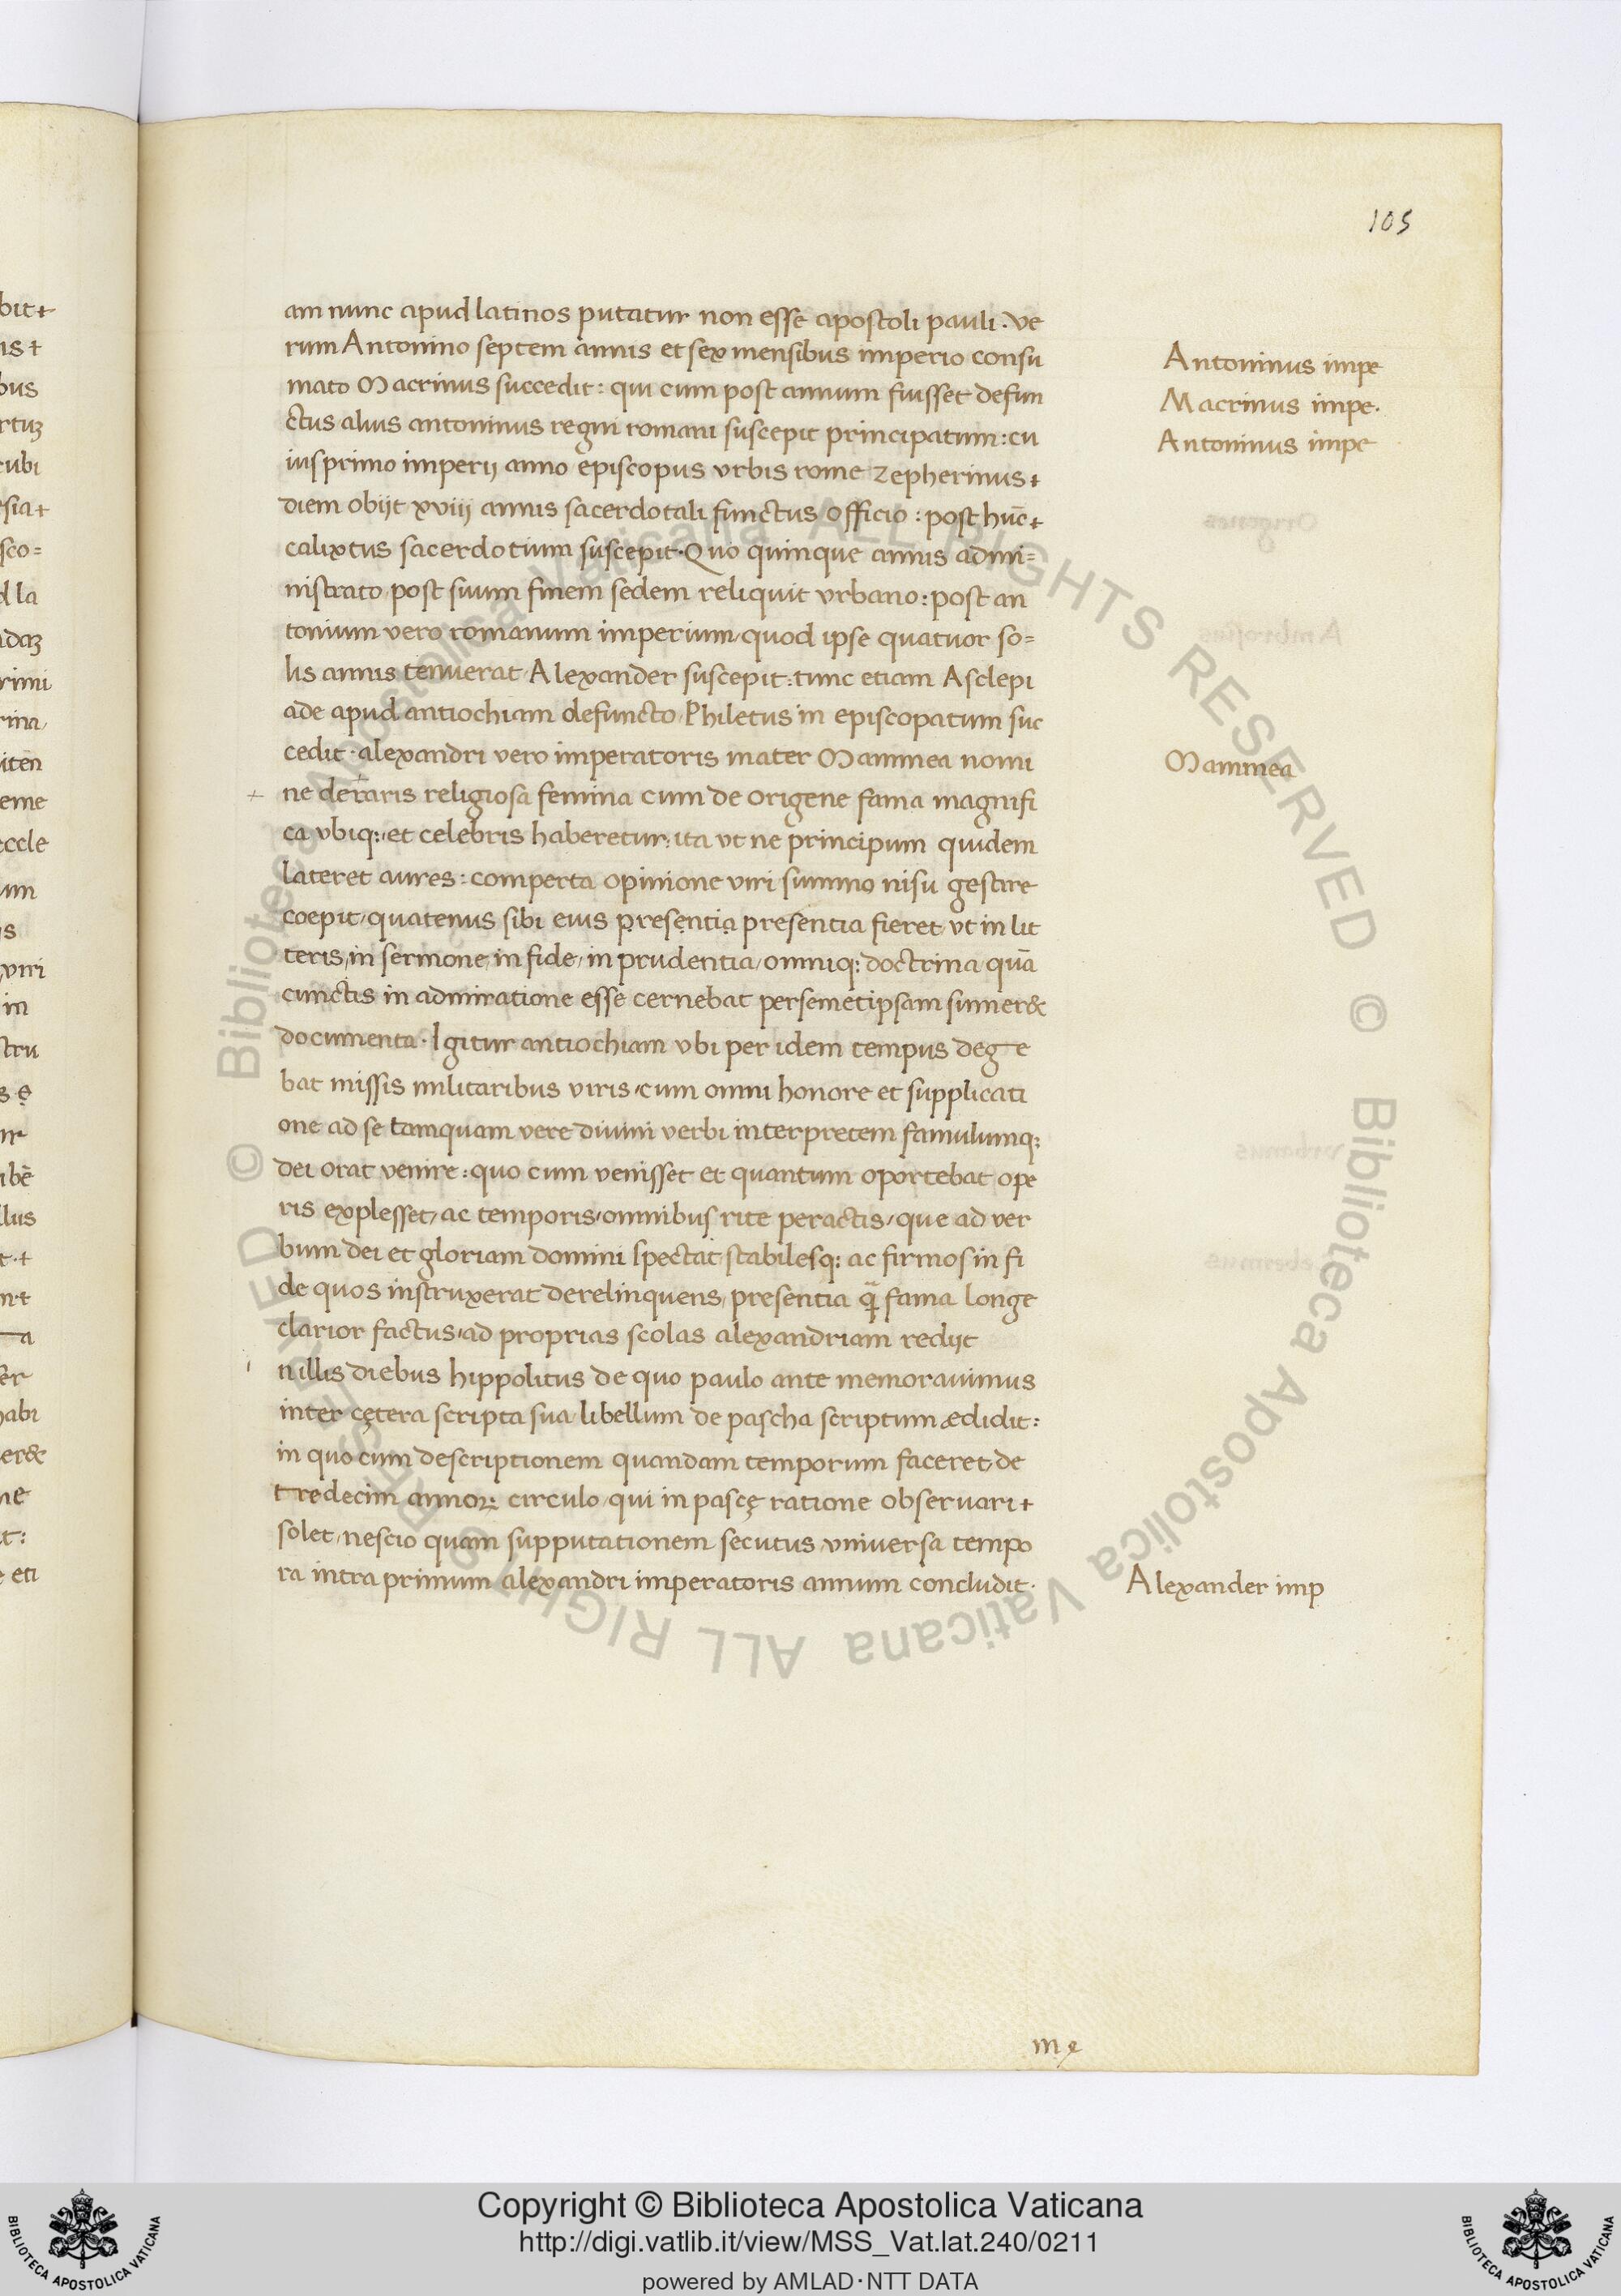 105
am nunc apud latinos putatur non esse apostoli pauli · ve
rum Antonino septem annis et sex mensibus imperio consu
mato Macrinus succedit : qui cum post annum fuisset defun
ctus alius antoninus regni romani suscepit principatum : cu
ius primo imperij anno episcopus vrbis rome zepherinus +
diem obijt xviij annis sacerdotali functus officio : post hūc +
calixtus sacerdotium suscepit · Quo quinque annis admi=
nistrato post suum finem sedem reliquit vrbano : post an
tonium vero romanum imperium quod ipse quatuor so=
lis annis tenuerat Alexander suscepit : tunc etiam Asclepi
ade apud antiochiam defuncto Philetus in episcopatum suc
cedit · alexandri vero imperatoris mater Mammea nomi
ne religiosa femina cum de origene fama magnifi
ca vbiq: et celebris haberetur : ita vt ne principum quidem
lateret aures : comperta opinione viri summo nisu gestire
coepit / quatenus sibi eius presentia presentia fieret vt in lit
teris / in sermone / in fide / in prudentia / omniq: doctrina quā
cunctis in admiratione esse cernebat per semetipsam sumer&
documenta · Igitur antiochiam vbi per idem tempus dege
bat missis militaribus viris / cum omni honore et supplicati
one ad se tamquam vere diuini verbi interpretem famulumq:
dei orat venire : quo cum venisset et quantum oportebat ope
ris explesset / ac temporis / omnibus rite peractis / que ad ver
bum dei et gloriam domini spectat stabilesq: ac firmos in fi
de quos instruxerat derelinquens / presentia q̄ fama longe
clarior factus / ad proprias scolas alexandriam redijt
i nillis diebus hippolitus de quo paulo ante memorauimus
inter cętera scripta sua / libellum de pascha scriptum ædidit :
in quo cum descriptionem quandam temporum faceret de
tredecim annoꝝ circulo / qui in pascę ratione obseruari +
solet / nescio quam supputationem secutus vniuersa tempo
ra intra primum alexandri imperatoris annum concludit ·
Antoninus impe
Macrinus impe ·
Antoninus impe
Mammea
Alexander imp
Copyright © Biblioteca Apostolica Vaticana
http://digi.vatlib.it/view/MSS_Vat.lat.240/0211
powered by AMLAD·NTT DATA
BIBLIOTECA APOSTOLICA VATICANA
BIBLIOTECA APOSTOLICA VATICANA
© Biblioteca Apostolica Vaticana ALL RIGHTS RESERVED
© Biblioteca Apostolica Vaticana ALL RIGHTS RESERVED